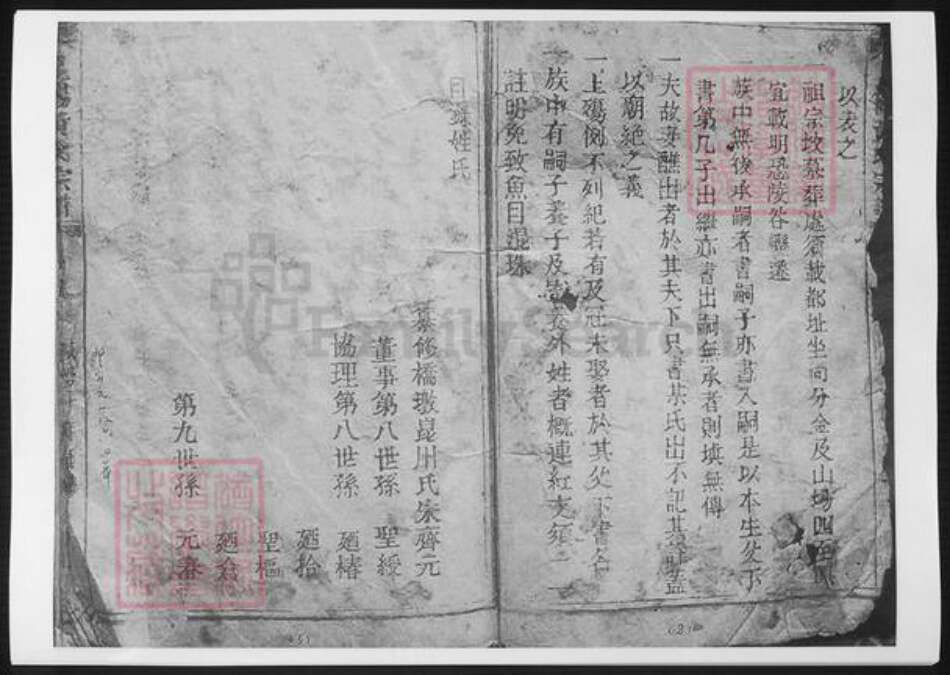 以表之
一祖宗坟墓葬處須載都址坐向分金及山塲四至
宜載明恐陵谷變遷
一族中無後承嗣者書嗣子亦書入嗣是以本生父下
書第几子出繼亦書出嗣無承者則填無傳
一夫故妻醮出者於其夫下只書某氏出不記其
以廟絕之義
一上殤例不列紀若有及冠未娶者於其父下書名
一族中有嗣子養子及外姓者概連紅支須
註明免致魚目混珠
目錄姓氏
纂修橋墩崑川氏朱齊元
董事第八世孫 聖綬
協理第八世孫 廼椿
廼拾
聖樞
廼
第九世孫 元春
FamilySearch
(2)